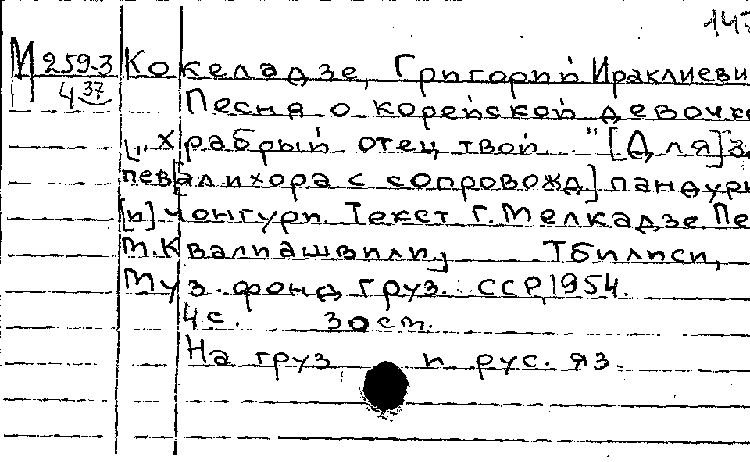 147
М 259-3 Кокеладзе, Григорий Ираклиеви
4 37 Песня о корейской девочке
[„Храбрый отец твой..." [Для] за
певалихора с сопровожд] пандури
[и] чонгури. Текст Г. Мелкадзе. Пе
М. Квалиашвили, Тбилиси,
Муз. фонд Груз. ССР, 1954.
4 с. 30 см.
На груз. и рус. яз.